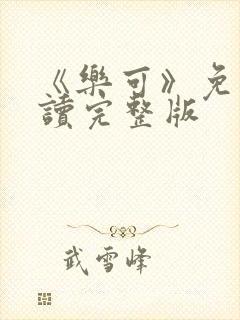 《樂可》免
讀完整版
武雪峰